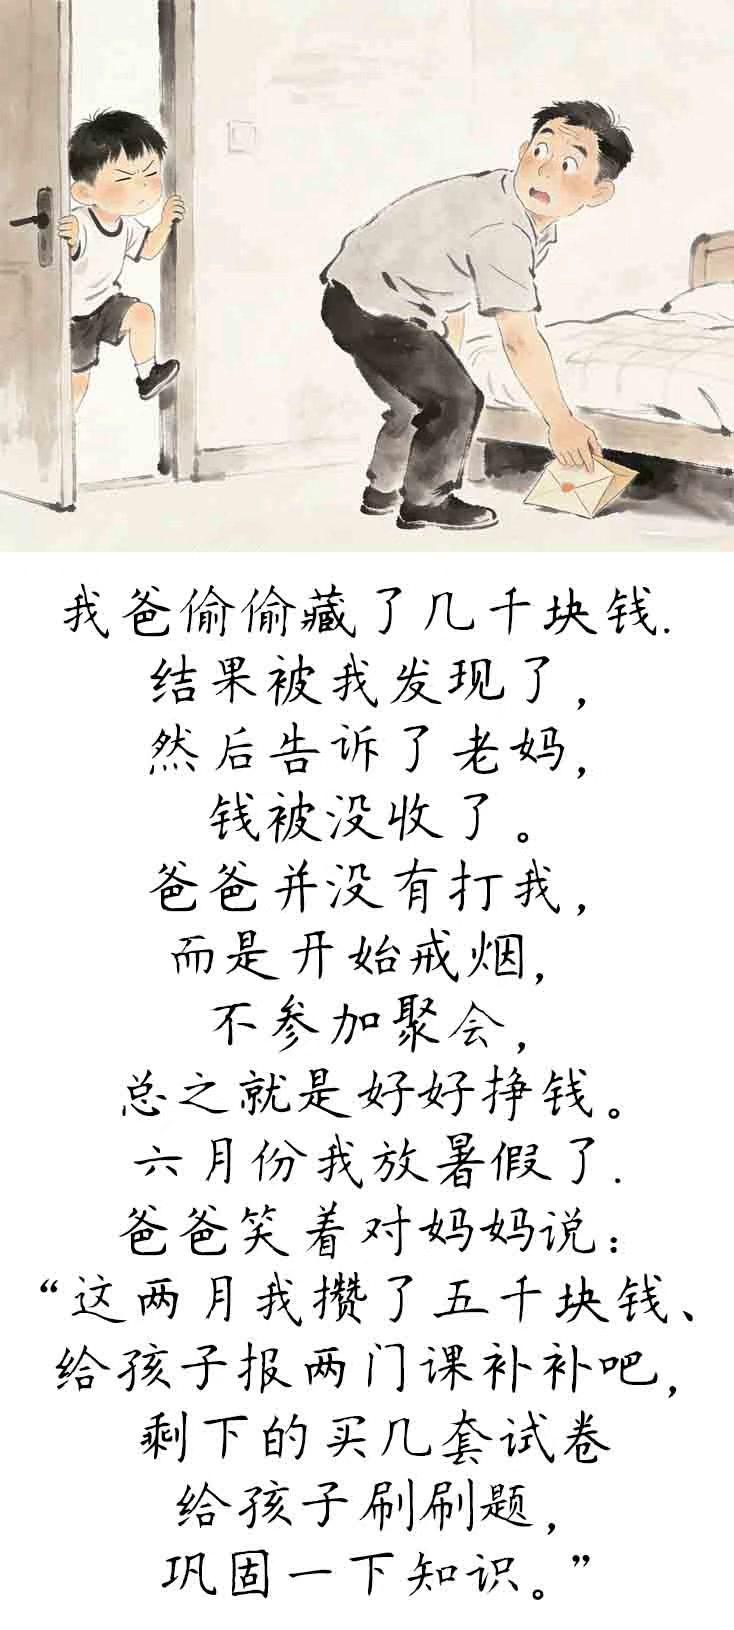 我爸偷偷藏了几千块钱.
结果被我发现了，
然后告诉了老妈，
钱被没收了。
爸爸并没有打我，
而是开始戒烟，
不参加聚会，
总之就是好好挣钱。
六月份我放暑假了.
爸爸笑着对妈妈说：
“这两月我攒了五千块钱、
给孩子报两门课补补吧，
剩下的买几套试卷
给孩子刷刷题，
巩固一下知识。”